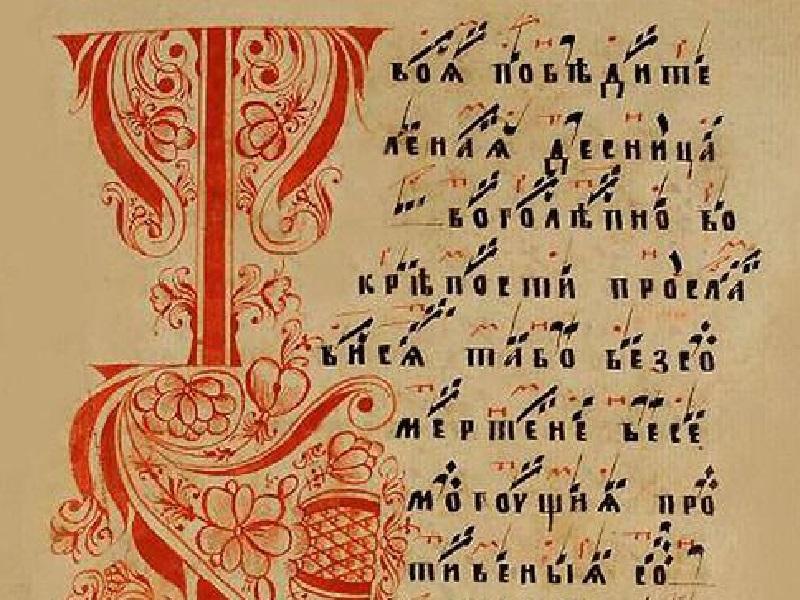 Твоѧ побѣдите
ленаѧ десница
боголѣпно во
крѣпости просла
висѧ тѧбо безсо
мертене весе
могоущиѧ про
тивеныѧ со